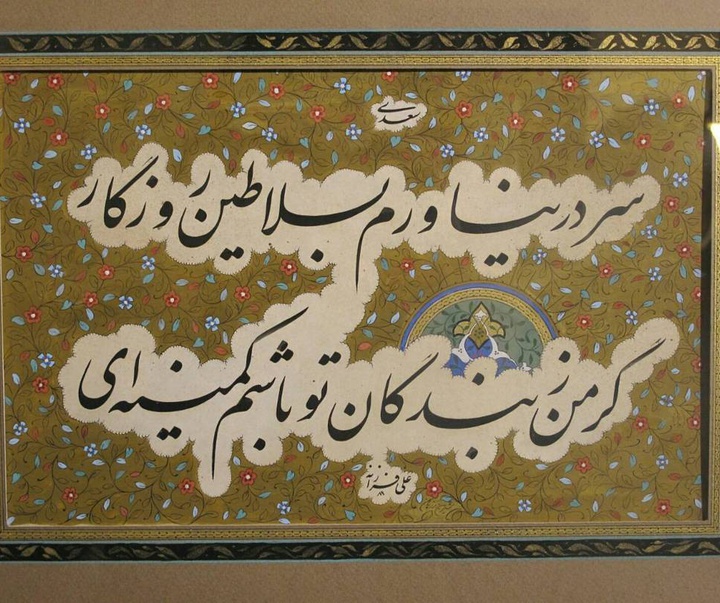 سعدی
سر در نیاورم بسلاطین روزگار
گر من ز بندگان تو باشم کمینه‌ای
علی فرزانه